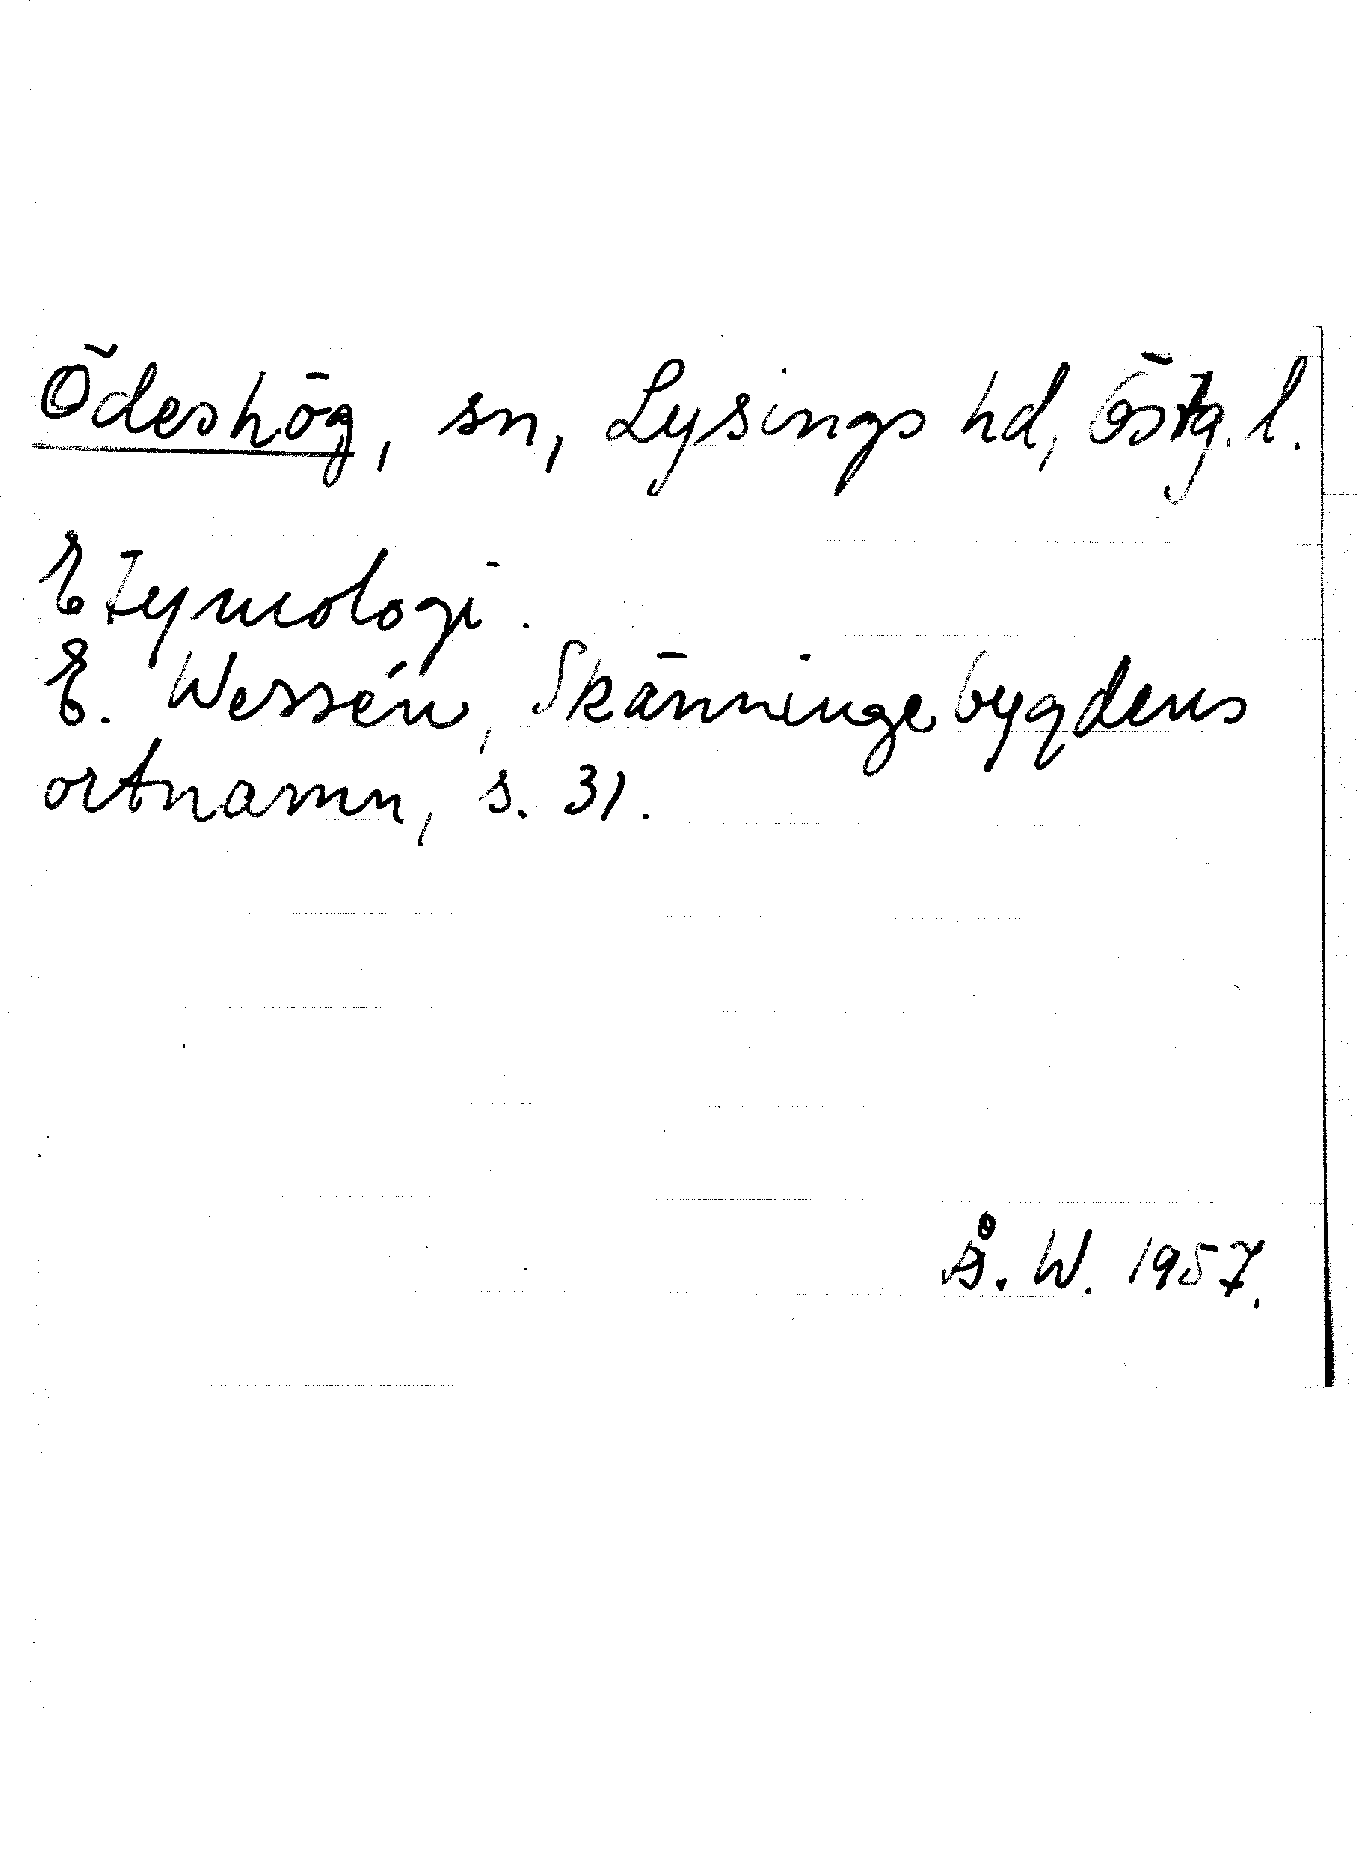 Ödeshög, sn, Lysings hd, Östg. l.
Etymologi.
E. Wessén, Skänningebygdens
ortnamn, s. 31.
Å. W. 1957.